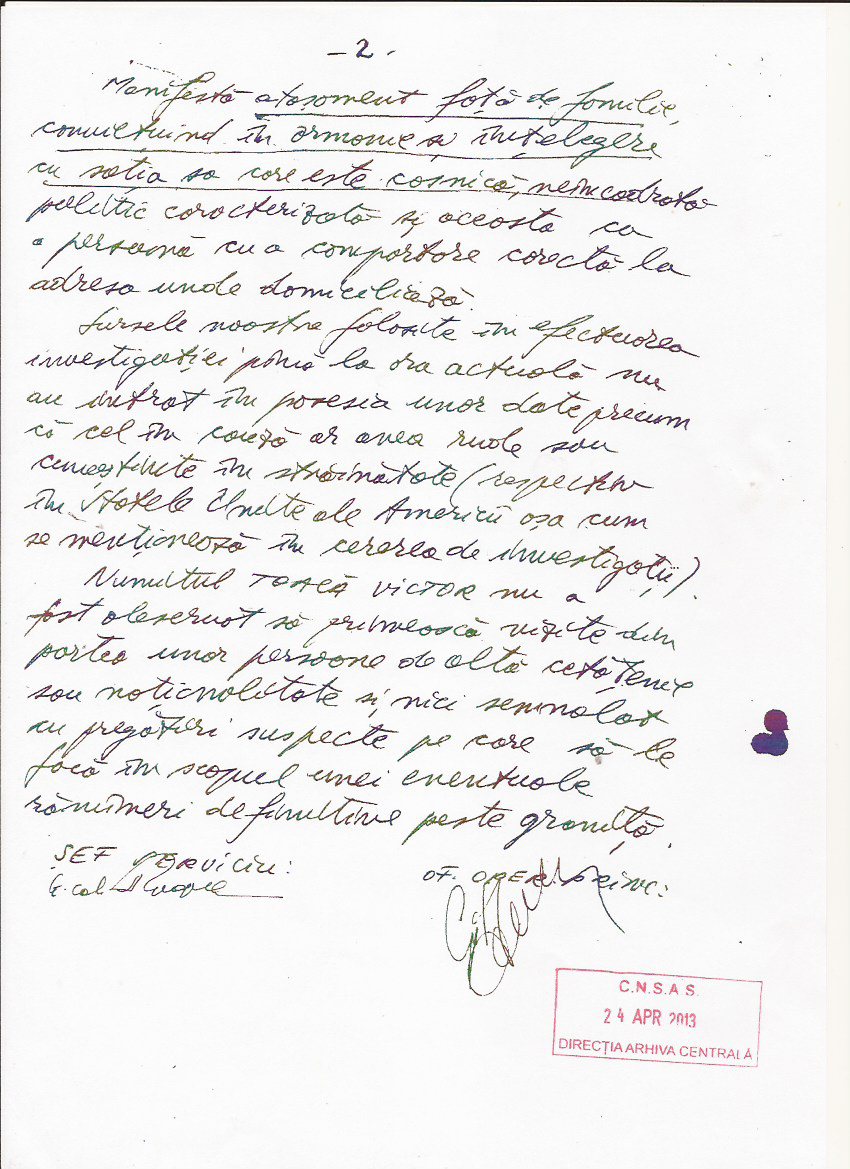 - 2 -
Manifestă atașament față de familie,
conviețuind în armonie și înțelegere
cu soția sa care este casnică, neîncadrată
politic caracterizată și aceasta ca
o persoană cu o comportare corectă la
adresa unde domiciliază.
Sursele noastre folosite în efectuarea
investigației pînă la ora actuală nu
au intrat în posesia unor date precum
că cel în cauză ar avea rude sau
cunoștințe în străinătate (respectiv
în Statele Unite ale Americii așa cum
se menționează în cererea de investigații).
Numitul TOACĂ VICTOR nu a
fost observat să primească vizite din
partea unor persoane de altă cetățenie
sau naționalitate și nici semnalat
cu pregătiri suspecte pe care să le
facă în scopul unei eventuale
rămîneri definitive peste graniță.
ȘEF SERVICIU:
OF. OPER. PRINC:
C.N.S.A.S.
24 APR 2013
DIRECȚIA ARHIVA CENTRALĂ